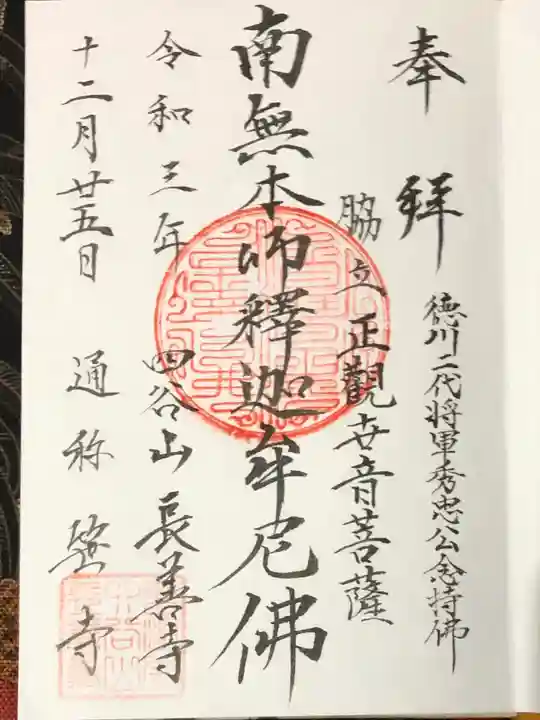 奉拜
德川二代将軍秀忠公念持佛
脇立正觀世音菩薩
南無本師釋迦牟尼佛
令和三年 四谷山 長善寺
十二月廿五日 通称 笹寺